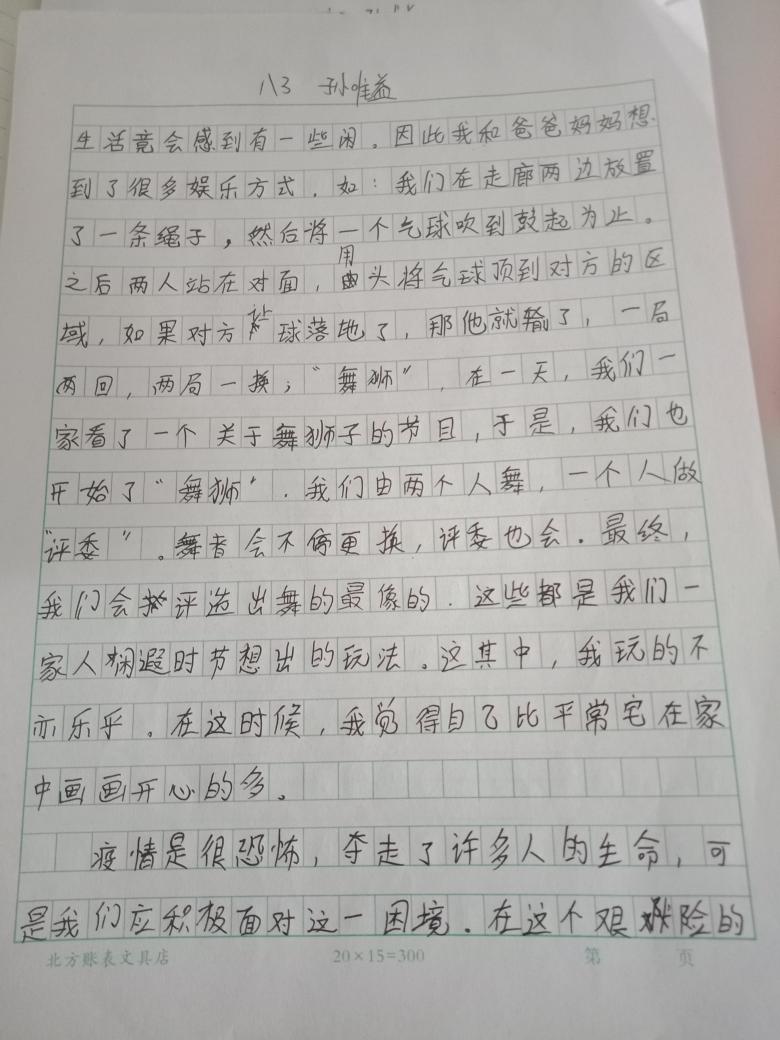 八3 孙唯益
生活竟会感到有一些闲。因此我和爸爸妈妈想
到了很多娱乐方式。如：我们在走廊两边放置
了一条绳子，然后将一个气球吹到鼓起为止。
之后两人站在对面，用头将气球顶到对方的区
域，如果对方让球落地了，那他就输了，一局
两回，两局一换；“舞狮”，在一天，我们一
家看了一个关于舞狮子的节目，于是，我们也
开始了“舞狮”．我们由两个人舞，一个人做
“评委”。舞者会不停更换，评委也会．最终，
我们会评选出舞的最像的．这些都是我们一
家人闲遐时节想出的玩法。这其中，我玩的不
亦乐乎。在这时候，我觉得自己比平常宅在家
中画画开心的多。
疫情是很恐怖，夺走了许多人的生命，可
是我们应积极面对这一困境．在这个艰险的
北方账表文具店 20×15=300 第 页